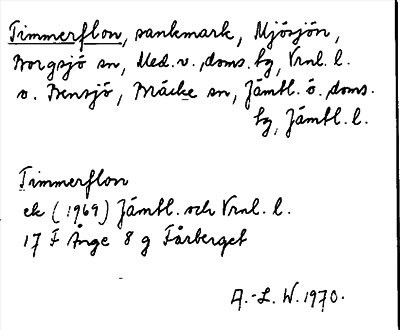 Timmerflon, sankmark, Mjösjön,
Borgsjö sn, Med. v. doms. hg, Vrnl. l.
o. Bensjö, Bräcke sn, Jämtl. ö. doms.
hg, Jämtl. l.
Timmerflon
ek (1969) Jämtl. och Vrnl. l.
17 F Ånge 8 g Fårberget
A.-L. W. 1970.